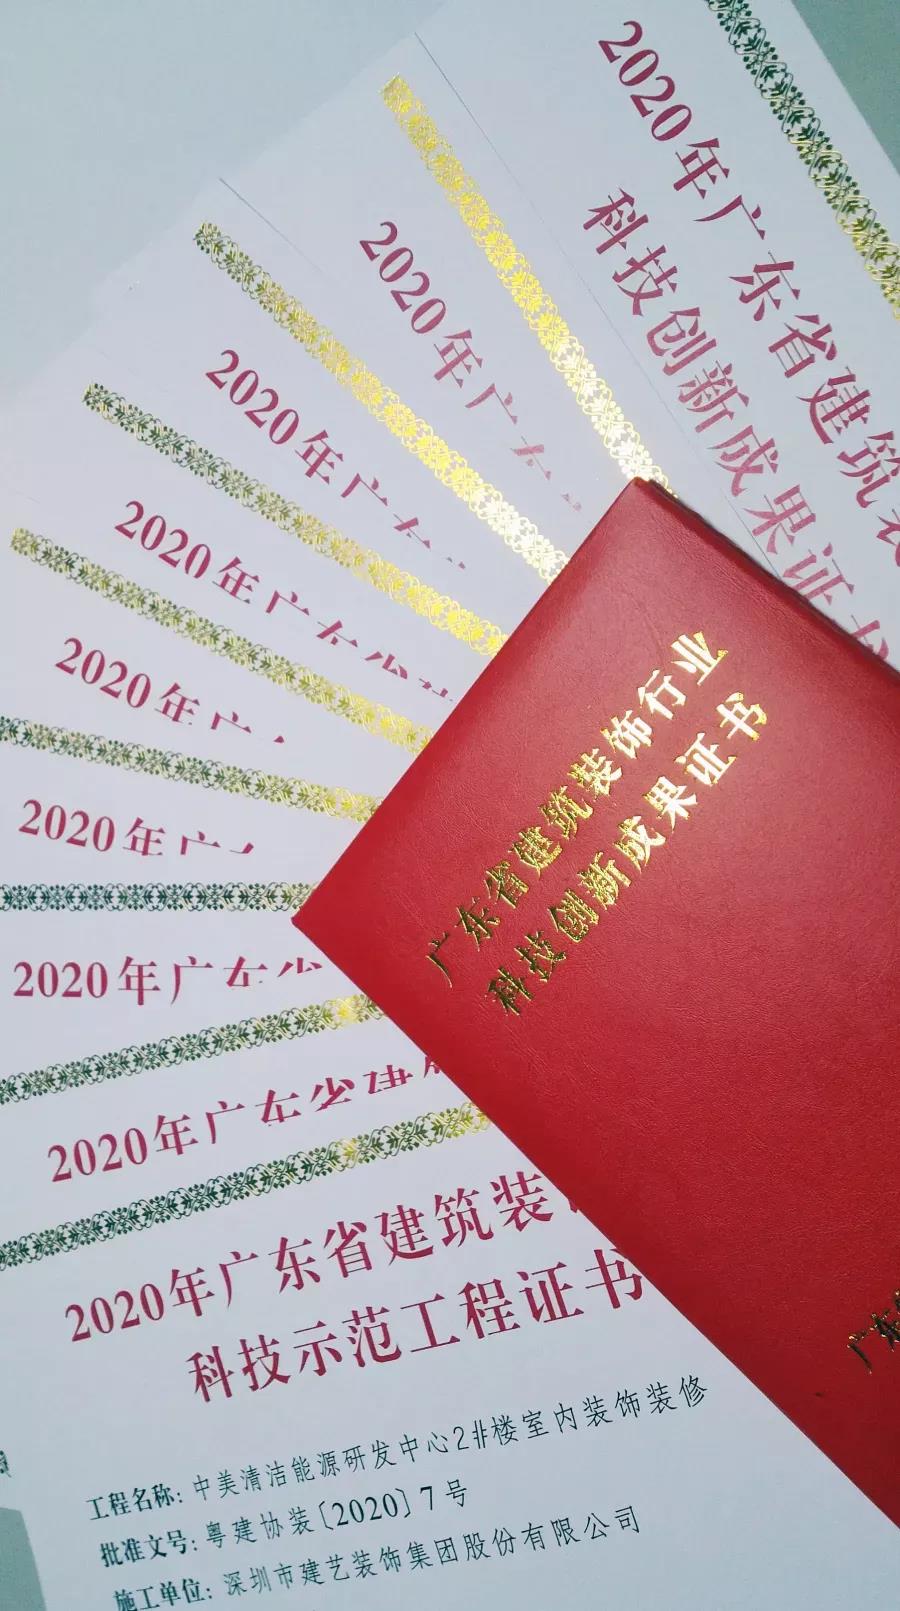 2020年广东省建筑装
科技创新成果证书
2020年广东
2020年广东
2020年广东省建
2020年广
2020年广东
2020年广东省
2020年广东省建筑
2020年广东省建筑装
科技示范工程证书
工程名称：中美清洁能源研发中心2#楼室内装饰装修
批准文号：粤建协装〔2020〕7号
施工单位：深圳市建艺装饰集团股份有限公司
广东省建筑装饰行业
科技创新成果证书
广东